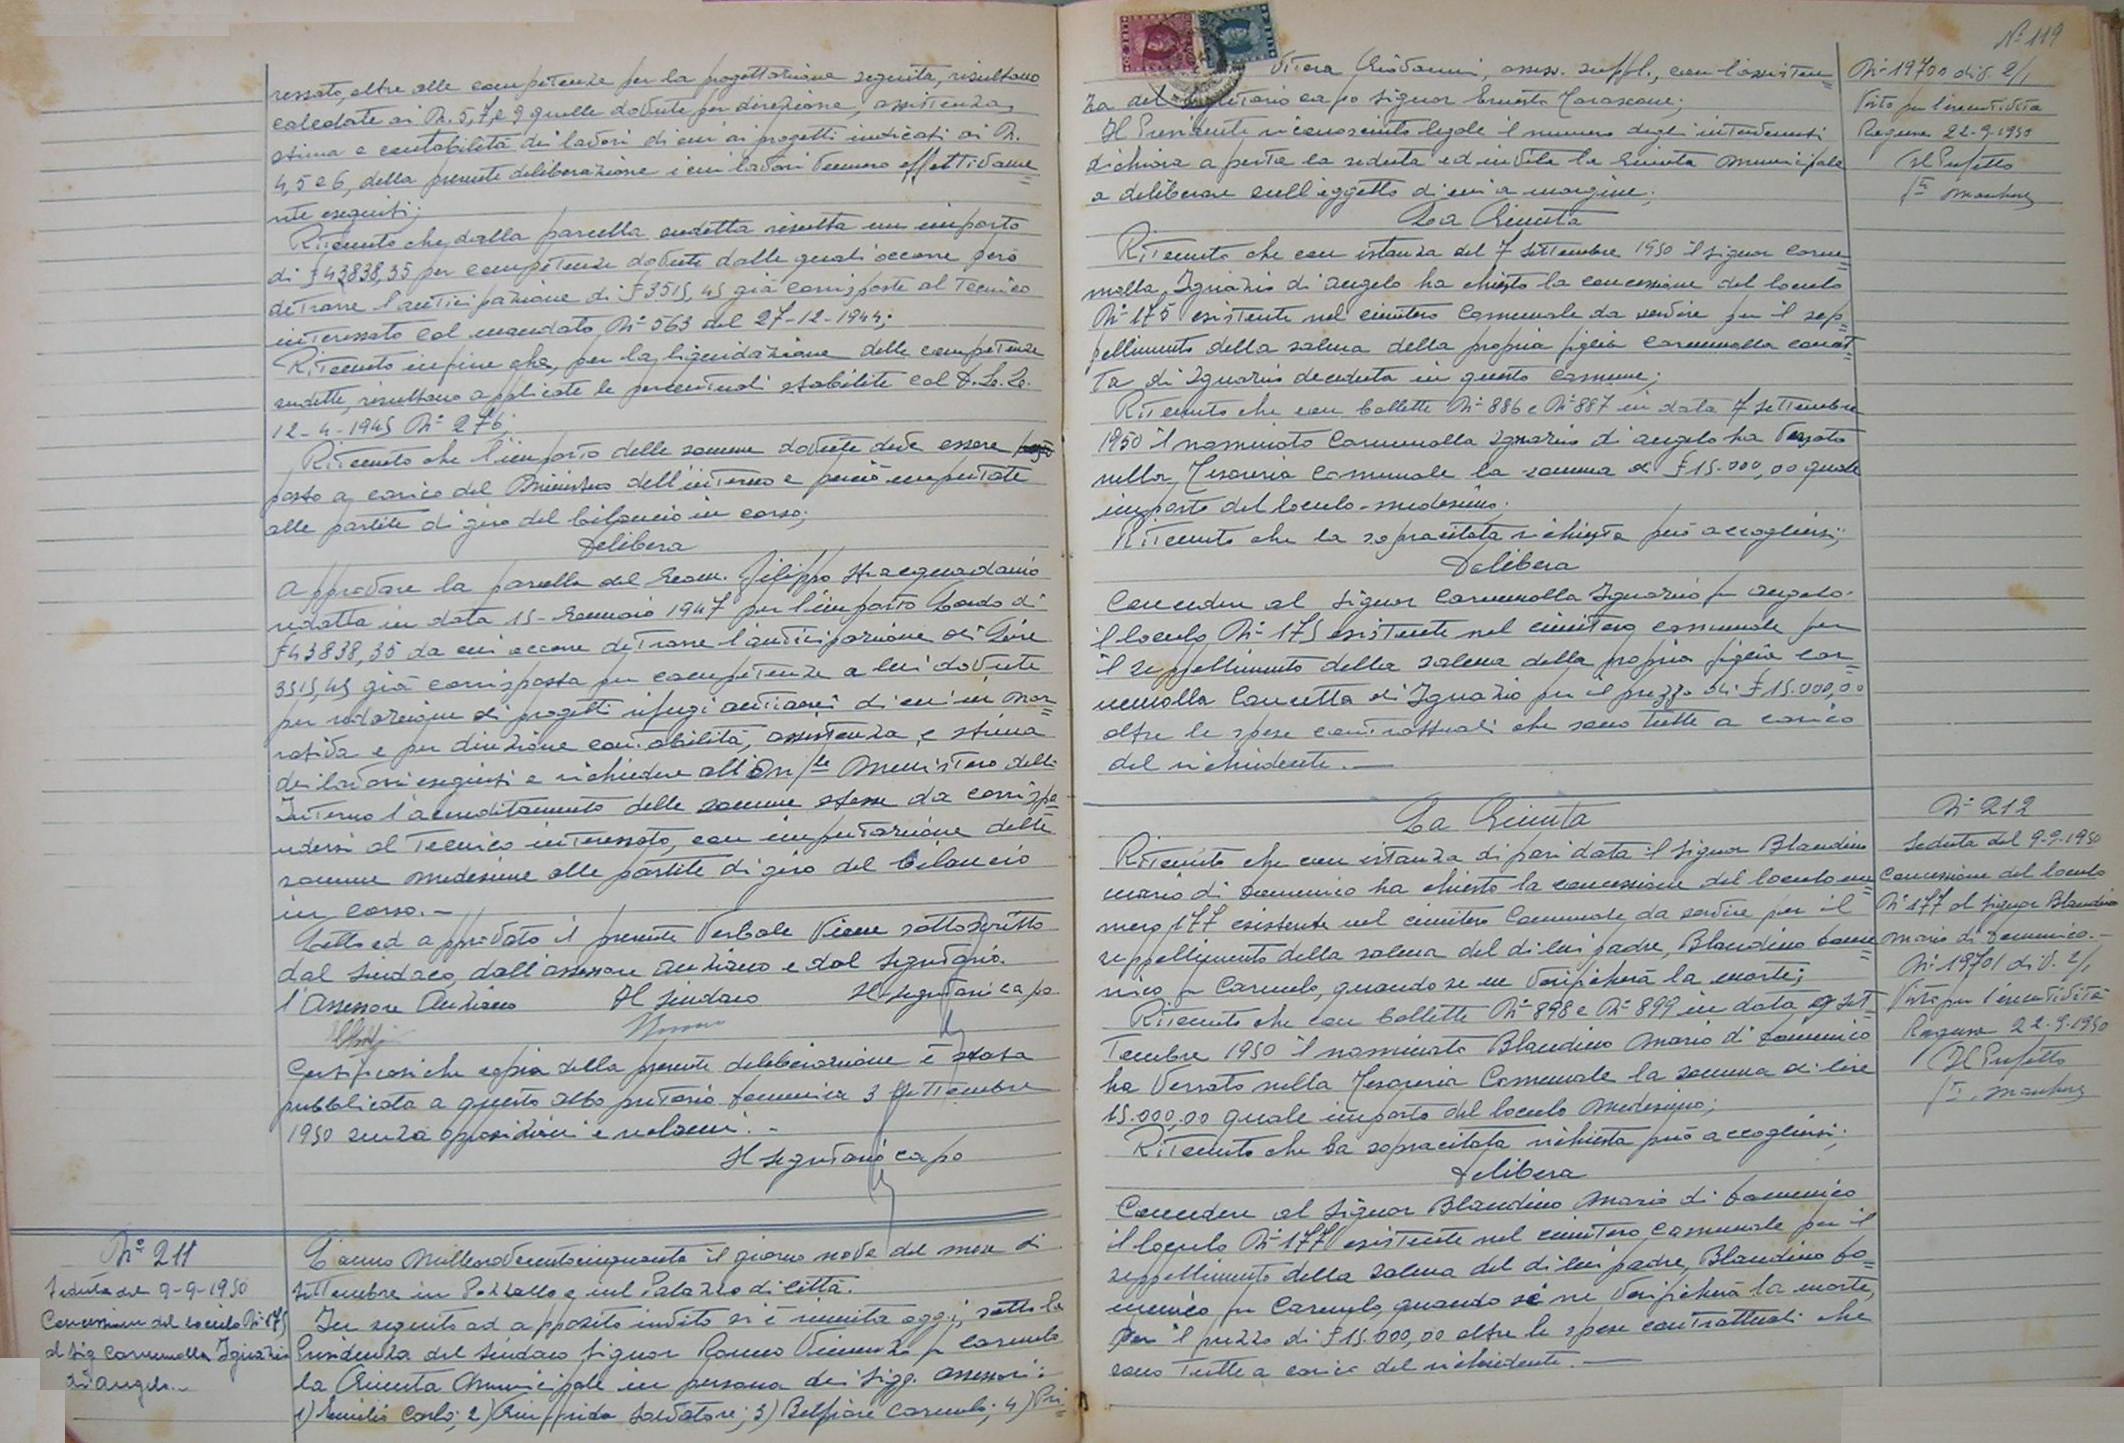 ressato, oltre alle competenze per la progettazione seguita, risultano
calcolate ai N. 5, 7, e 9 quelle dovute per direzione, assistenza,
stima e contabilità dei lavori di cui ai progetti indicati ai N.
4, 5 e 6, della presente deliberazione i cui lavori vennero effettivame=
nte eseguiti;
Ritenuto che dalla parcella sudetta risulta un importo
di £ 43838,35 per competenze dovute dalle quali occorre però
detrarre l'anticipazione di £ 3515,45 già corrisposte al Tecnico
interessato col mandato N° 563 del 27-12-1944;
Ritenuto infine che, per la liquidazione delle competenze
sudette, risultano applicate le percentuali stabilite col D. L. L.
12-4-1945 N° 276;
Ritenuto che l'importo delle somme dovute deve essere
posto a carico del Ministero dell'interno e perciò imputate
alle partite di giro del bilancio in corso;
Delibera
Approvare la parcella del Geom. Filippo Stracquadanio
redatta in data 15-Gennaio 1947 per l'importo lordo di
£ 43838,35 da cui occorre detrarre l'anticipazione di Lire
3515,45 già corrisposta per competenze a lui dovute
per redazione di progetti rifugi antiaerei di cui in nar=
rativa e per direzione contabilità, assistenza, e stima
dei lavori eseguiti e richiedere all'On/le Ministero dell'
Interno l'accreditamento delle somme stesse da corrispo=
ndersi al Tecnico interessato, con imputazione delle
somme medesime alle partite di giro del bilancio
in corso.-
Letto ed approvato il presente Verbale viene sottoscritto
dal Sindaco, dall'assessore anziano e dal Segretario.
l'Assessore Anziano Il Sindaco Il Segretario capo
Certificasi che copia della presente deliberazione è stata
pubblicata a questo albo pretorio domenica 3 Settembre
1950 senza opposizioni e reclami.-
Il Segretario capo
N° 211
Seduta del 9-9-1950
Concessione del loculo N° 175
al Sig. Carnemolla Ignazio
di Angelo.-
L'anno millenovecentocinquanta il giorno nove del mese di
Settembre in Pozzallo e nel Palazzo di Città.
In seguito ad apposito invito si è riunita oggi, sotto la
Presidenza del Sindaco Signor Romeo Vincenzo fu Carmelo
la Giunta Municipale in persona dei Sigg. assessori:
1) Emilio Carlo; 2) Giunfrida Salvatore; 3) Belfiore Carmelo; 4) Pri=
N° 119
Vitera Giovanni, asses. suppl., con l'assisten=
za del Segretario capo Signor Ernesto Tarascone;
Il Presidente riconosciuto legale il numero degli intervenuti
dichiara aperta la seduta ed invita la Giunta Municipale
a deliberare sull'oggetto di cui a margine;
La Giunta
Ritenuto che con istanza del 7 Settembre 1950 il Signor Carne=
molla Ignazio di Angelo ha chiesto la concessione del loculo
N° 175 esistente nel cimitero Comunale da servire per il sep=
pellimento della salma della propria figlia Carnemolla Concet=
ta di Ignazio deceduta in questo Comune;
Ritenuto che con bollette N° 886 e N° 887 in data 7 Settembre
1950 il nominato Carnemolla Ignazio di Angelo ha versato
nella Tesoreria Comunale la somma di £ 15.000,00 quale
importo del loculo medesimo;
Ritenuto che la sopracitata richiesta può accogliersi;
Delibera
Concedere al Signor Carnemolla Ignazio fu Angelo
il loculo N° 175 esistente nel cimitero comunale per
il seppellimento della salma della propria figlia Car=
nemolla Concetta di Ignazio per il prezzo di £ 15.000,00
oltre le spese contrattuali che sono tutte a carico
del richiedente.-
La Giunta
Ritenuto che con istanza di pari data il Signor Blandino
Mario di Domenico ha chiesto la concessione del loculo nu=
mero 177 esistente nel cimitero Comunale da servire per il
seppellimento della salma del di lui padre, Blandino Dome=
nico fu Carmelo, quando se ne verificherà la morte;
Ritenuto che con bollette N° 898 e N° 899 in data 9 Set
tembre 1950 il nominato Blandino Mario di Domenico
ha versato nella Tesoreria Comunale la somma di lire
15.000,00 quale importo del loculo medesimo;
Ritenuto che la sopracitata richiesta può accogliersi;
Delibera
Concedere al Signor Blandino Mario di Domenico
il loculo N° 177 esistente nel cimitero Comunale per il
seppellimento della salma del di lui padre, Blandino Do=
menico fu Carmelo, quando se ne verificherà la morte,
per il prezzo di £ 15.000,00 oltre le spese contrattuali che
sono tutte a carico del richiedente.-
N° 19700 div. 2/1
Visto per l'esecutività
Ragusa 22-9-1950
Il Prefetto
N° 212
Seduta del 9-9-1950
Concessione del loculo
N° 177 al Signor Blandino
Mario di Domenico.-
N° 19701 div. 2/1
Visto per l'esecutività
Ragusa 22-9-1950
Il Prefetto